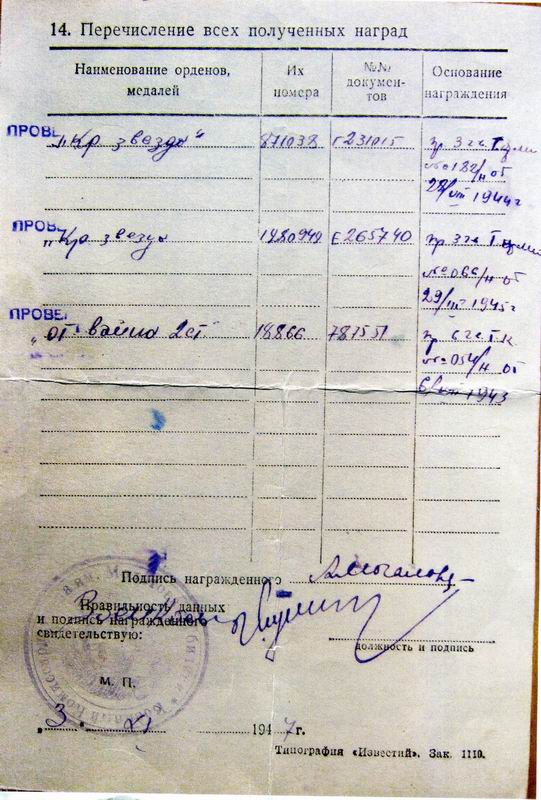 14. Перечисление всех полученных наград
Наименование орденов, медалей
Их номера
№№ документов
Основание награждения
ПРОВЕ
„Кр звезда“ 871038 Г 231015 пр 3 гв Т
№ 182/н от
1944 г
ПРОВЕ
„Кр звезда 1480949 Е 265740 пр 3 гв Т
№ 066/н от
29/ 1945 г
ПРОВЕ
„от война 2 ст" 18866 787551 пр 6 гв Т К
№ 054/н от
1943
Подпись награжденного
Правильность данных
и подпись награжденного
свидетельствую:
должность и подпись
М. П.
„3" 1947 г.
Типография «Известий». Зак. 1110.